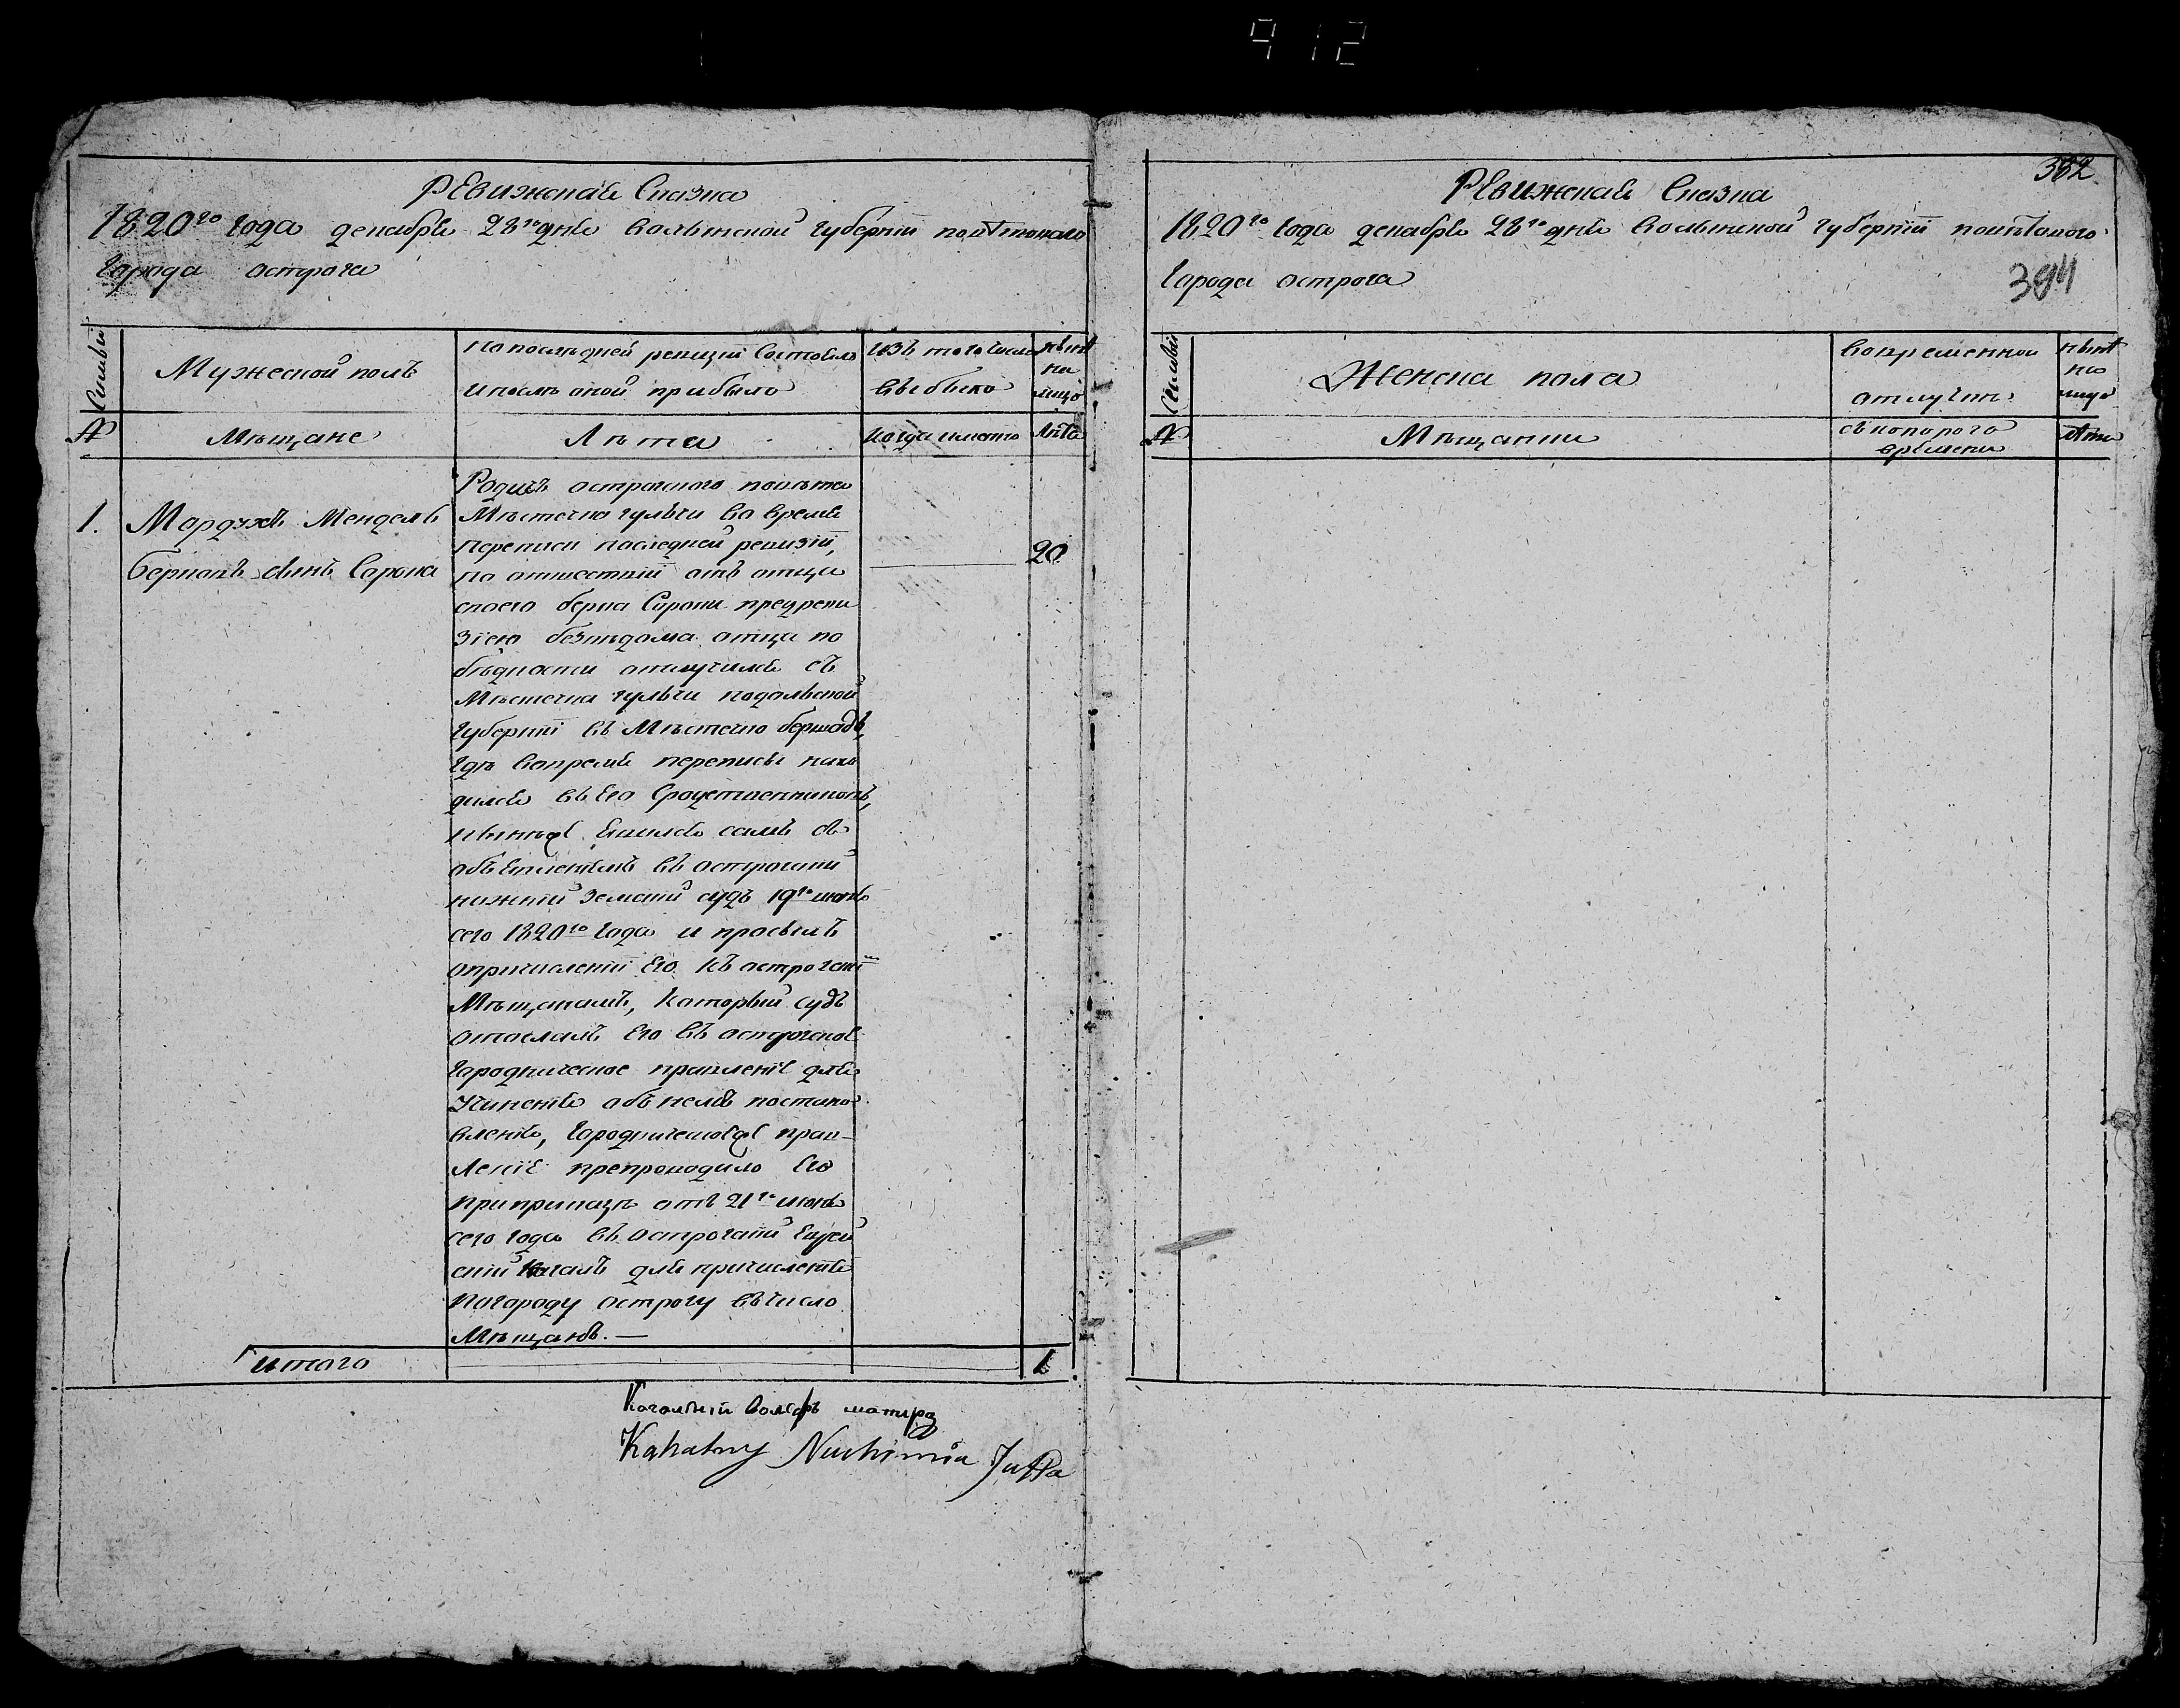 912
РЕвижская Сказка
1820го Года декабря 28го дня Волынской Губернии поветового
Города острога
Семьи
Мужеской полъ
по последней ревизии Состояло
и после оной прибыло
изъ того числа
выбыло
ныне
на
лицо
№
Мещане
Лета
когда имено
Лета
1.
Мордухъ Мендель
берковъ сынъ Сорока
Родилъ острогского повета
Местечка гульчи во время
переписи последней ревизии,
по отшествии отъ отца
своего берка Сороки предреви
зiею безъ дома отца по
бедности отлучился съ
Местечка гульчи подольской
Губернии въ Местечко бершадь,
где вовремя переписы нахо
дился въ Его Сроцственниковъ,
и ныне явился самъ съ
объявленiемъ въ острогский
нижний Земский судъ 19го июня
сего 1820го Года и просылъ
опричисленiи Его къ острогским
Мещанамъ, Который судъ
отослалъ Его въ острогское
Городническое правленiе для
учиненiя объ немъ постано
вленiя, Городническое прав-
Ленiе препроводило Его
приприказе отъ 21го июня
сего года въ острогский Еврей
ский Кагалъ для причисленiя
Погороду острогу вчисло
Мещанъ.—
20
итого
1
Кагальний Волфъ
Kahalny Nuchim
332
РЕвижская Сказка
1820го Года декабря 28го дня Волынской Губернии поветового
Города острога
394
Семьи
Женска пола
Вовременной
отлучки
ныне
на
лицо
№
Мещанки
съ которого
времени
Лета